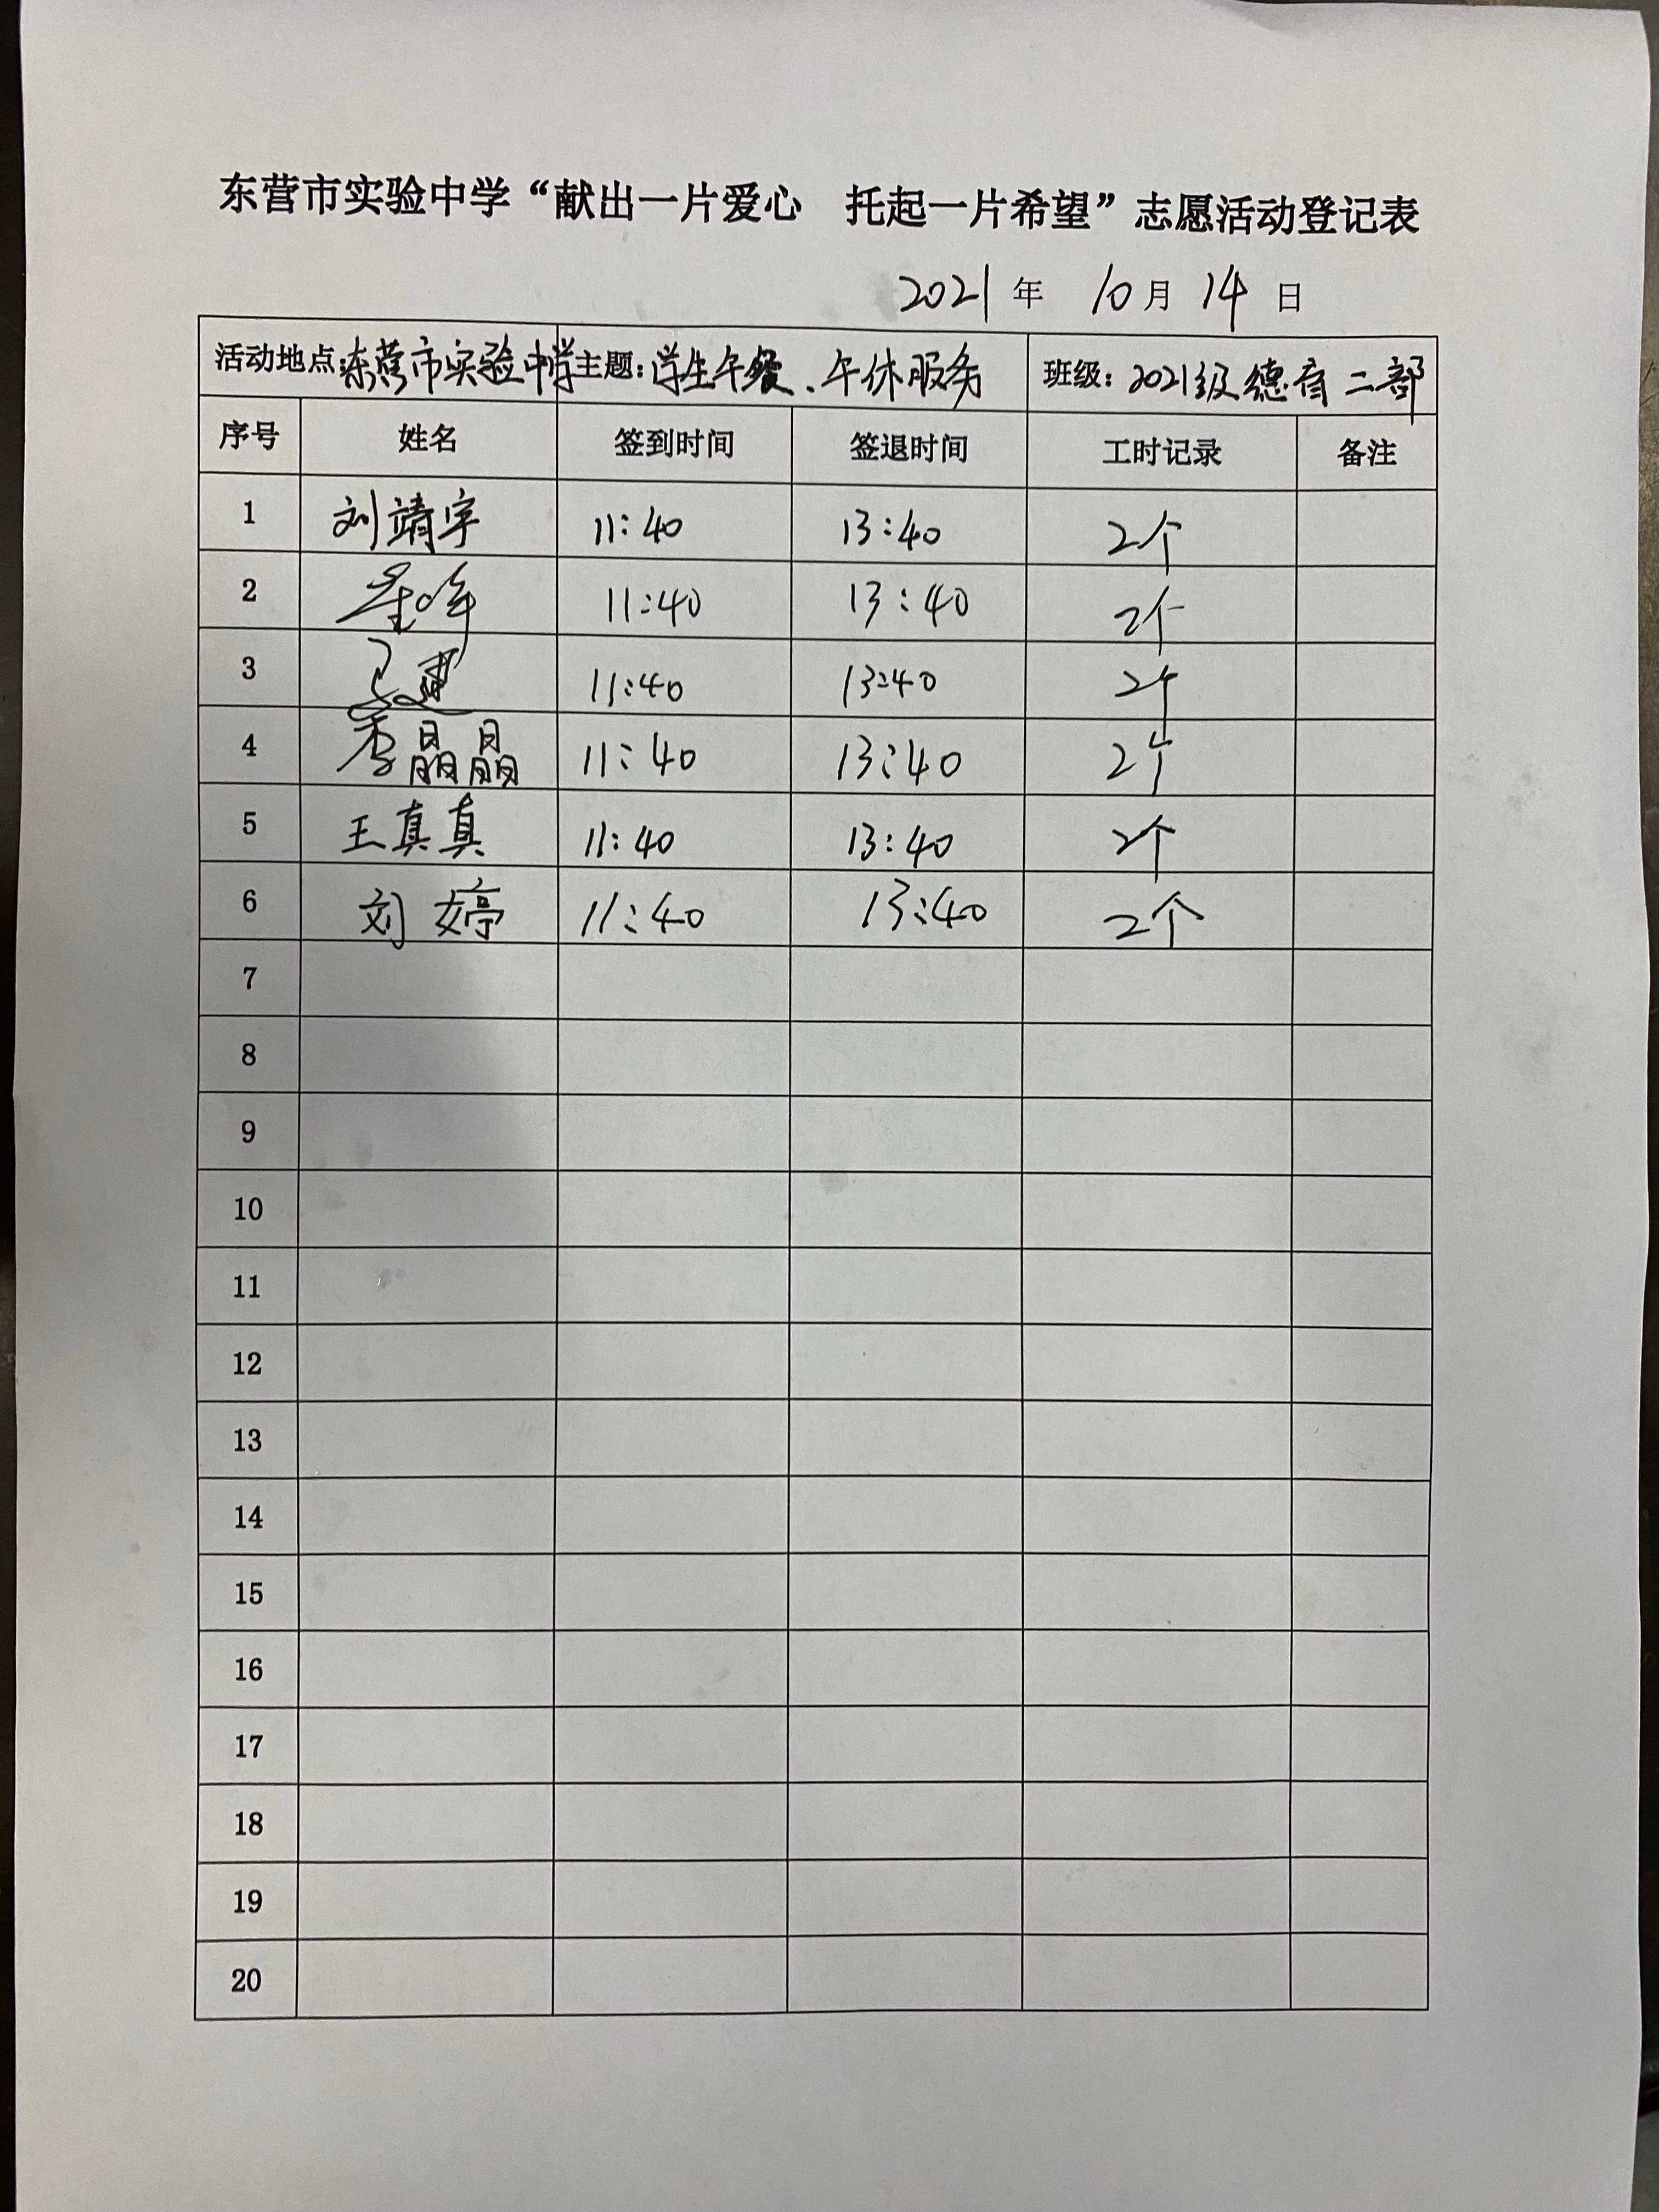 东营市实验中学“献出一片爱心 托起一片希望”志愿活动登记表
2021 年 10 月 14 日
活动地点:东营市实验中学 主题:学生午餐、午休服务 班级:2021级德育二部
序号 姓名 签到时间 签退时间 工时记录 备注
1 刘靖宇 11:40 13:40 2个
2 11:40 13:40 2个
3 11:40 13:40 2个
4 李晶晶 11:40 13:40 2个
5 王真真 11:40 13:40 2个
6 刘婷 11:40 13:40 2个
7
8
9
10
11
12
13
14
15
16
17
18
19
20